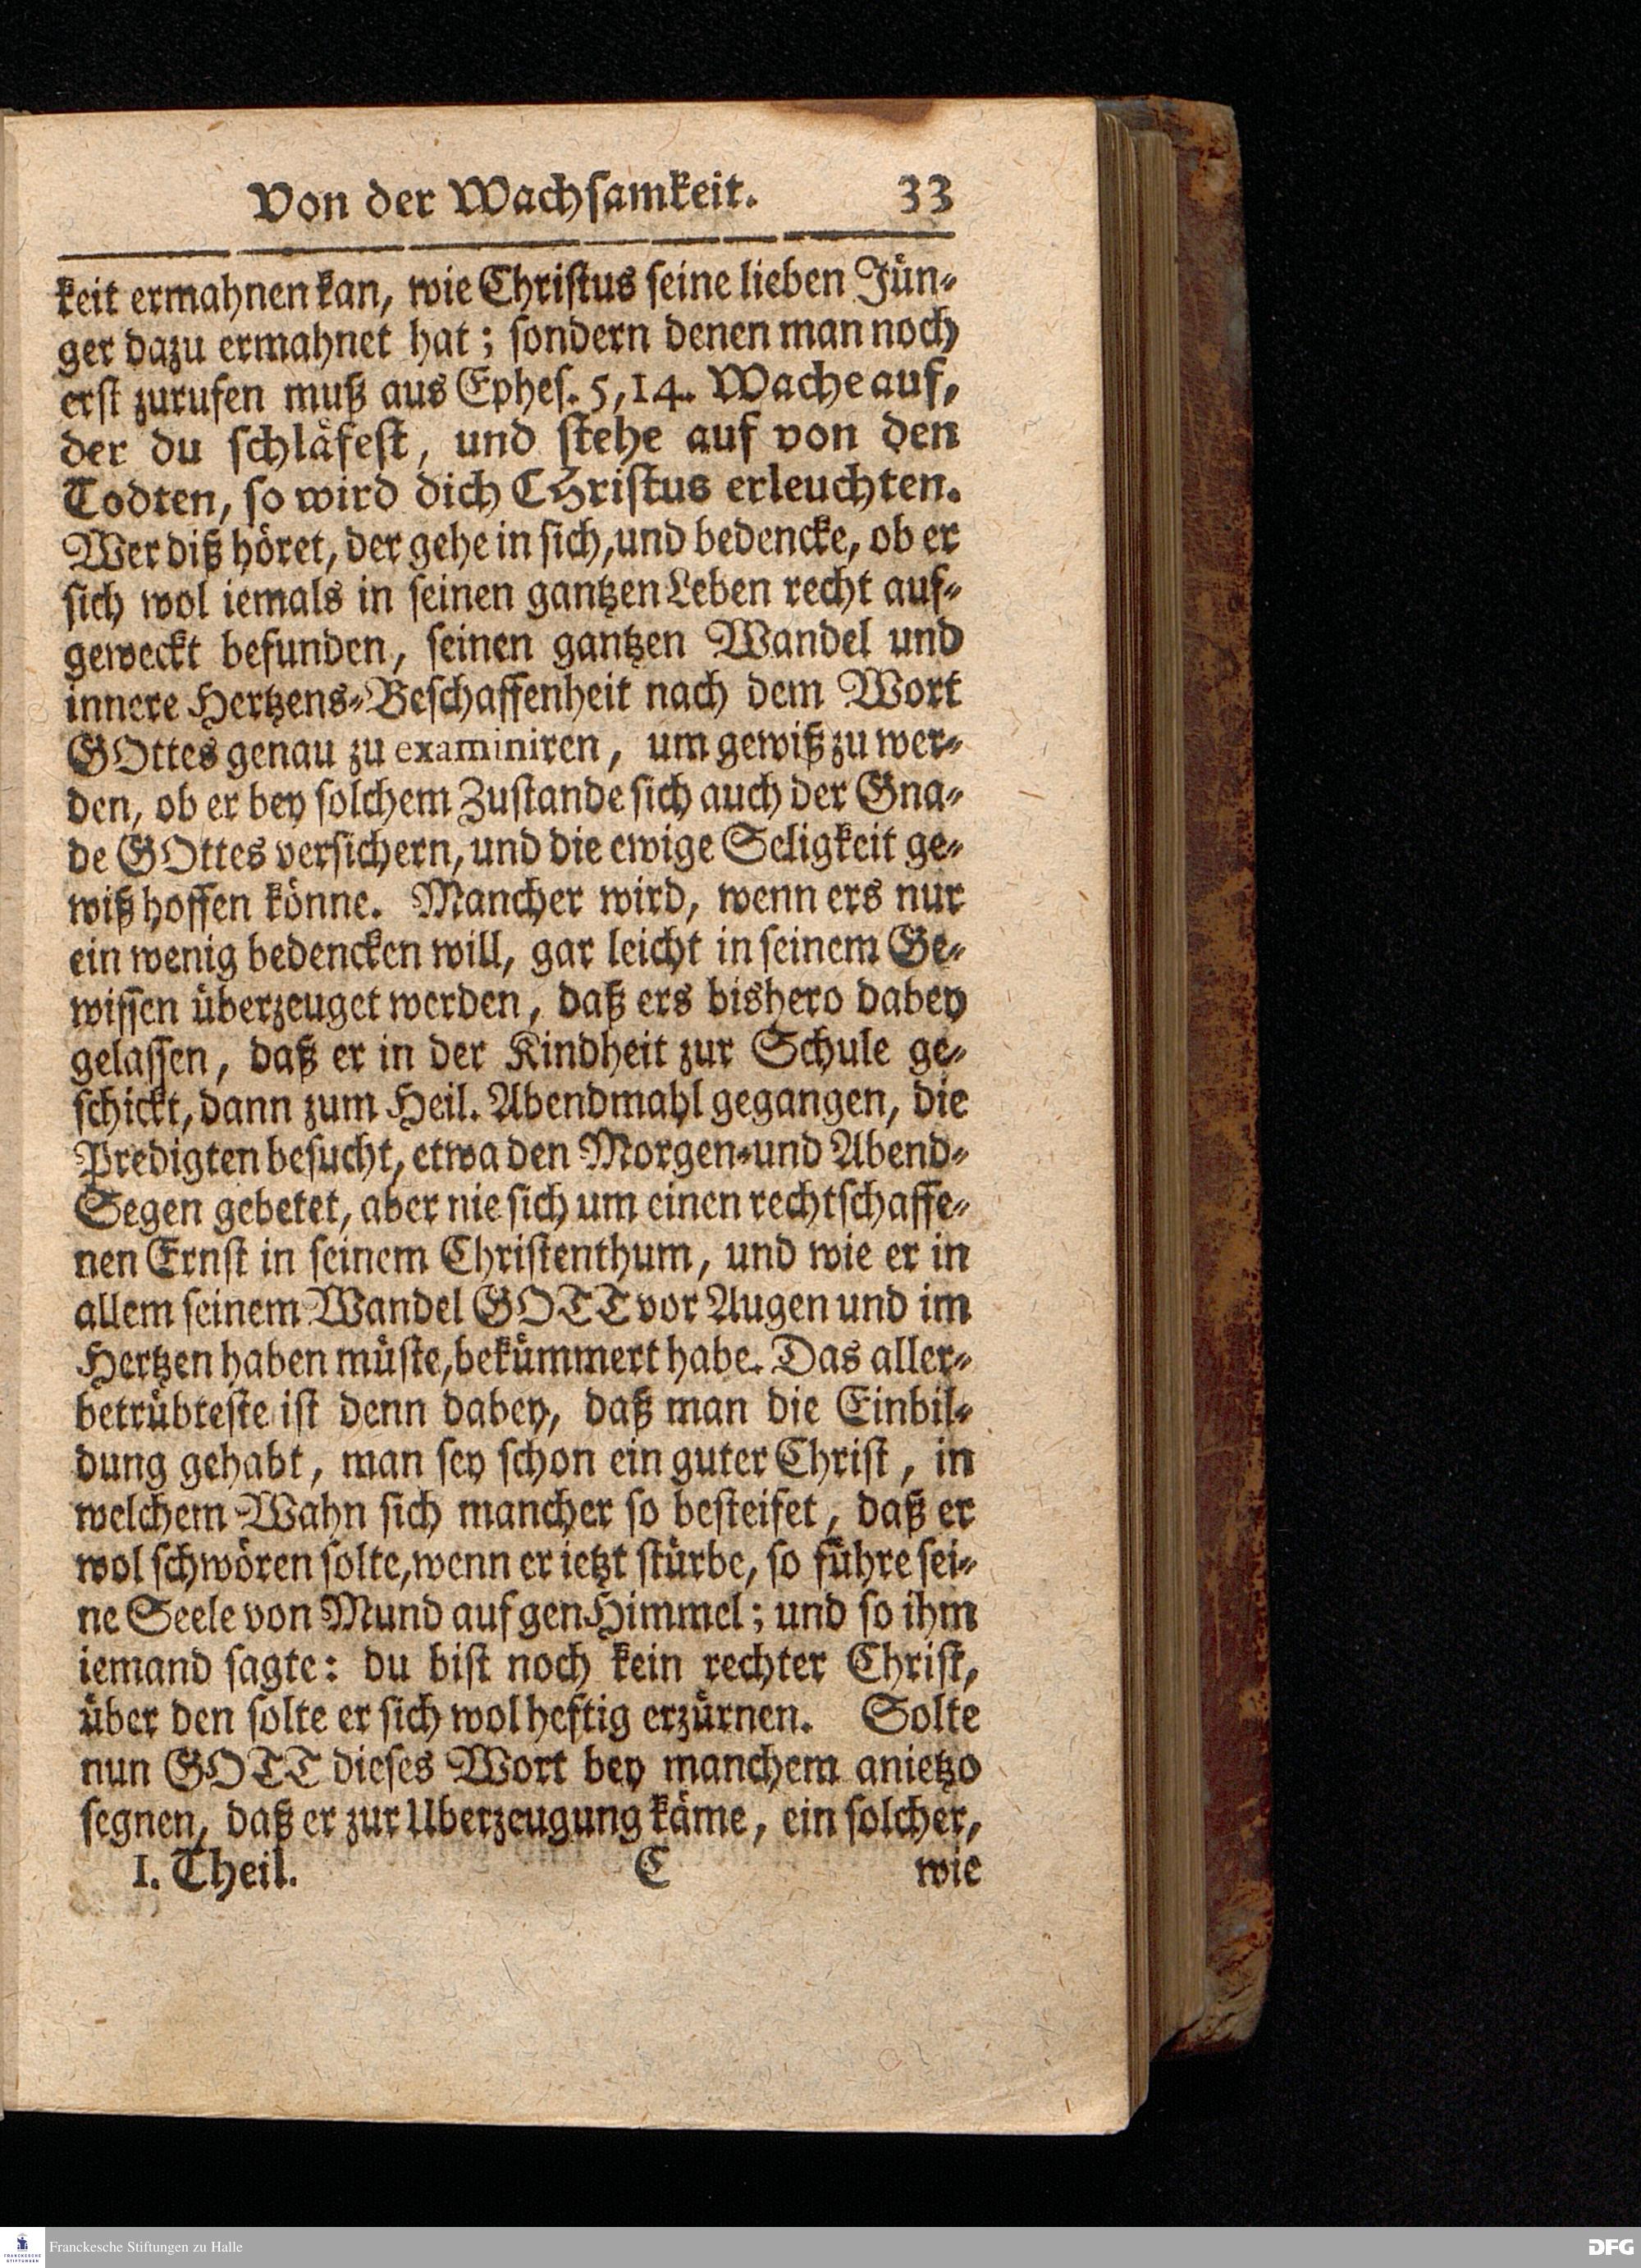 Von der Wachsamkeit. 33
keit ermahnen kan, wie Christus seine lieben Jün-
ger dazu ermahnet hat; sondern denen man noch
erst zurufen muß aus Ephes. 5, 14. Wache auf,
der du schläfest, und stehe auf von den
Todten, so wird dich CHristus erleuchten.
Wer diß höret, der gehe in sich, und bedencke, ob er
sich wol iemals in seinen gantzen Leben recht auf-
geweckt befunden, seinen gantzen Wandel und
innere Hertzens-Beschaffenheit nach dem Wort
GOttes genau zu examiniren, um gewiß zu wer-
den, ob er bey solchem Zustande sich auch der Gna-
de GOttes versichern, und die ewige Seligkeit ge-
wiß hoffen könne. Mancher wird, wenn ers nur
ein wenig bedencken will, gar leicht in seinem Ge-
wissen überzeuget werden, daß ers bishero dabey
gelassen, daß er in der Kindheit zur Schule ge-
schickt, dann zum Heil. Abendmahl gegangen, die
Predigten besucht, etwa den Morgen- und Abend-
Segen gebetet, aber nie sich um einen rechtschaffe-
nen Ernst in seinem Christenthum, und wie er in
allem seinem Wandel GOTT vor Augen und im
Hertzen haben müste, bekümmert habe. Das aller-
betrübteste ist denn dabey, daß man die Einbil-
dung gehabt, man sey schon ein guter Christ, in
welchem Wahn sich mancher so besteifet, daß er
wol schwören solte, wenn er ietzt stürbe, so führe sei-
ne Seele von Mund auf gen Himmel; und so ihm
iemand sagte: du bist noch kein rechter Christ,
über den solte er sich wol heftig erzürnen. Solte
nun GOTT dieses Wort bey manchem anietzo
segnen, daß er zur Uberzeugung käme, ein solcher,
I. Theil. C wie
Franckesche Stiftungen zu Halle
DFG